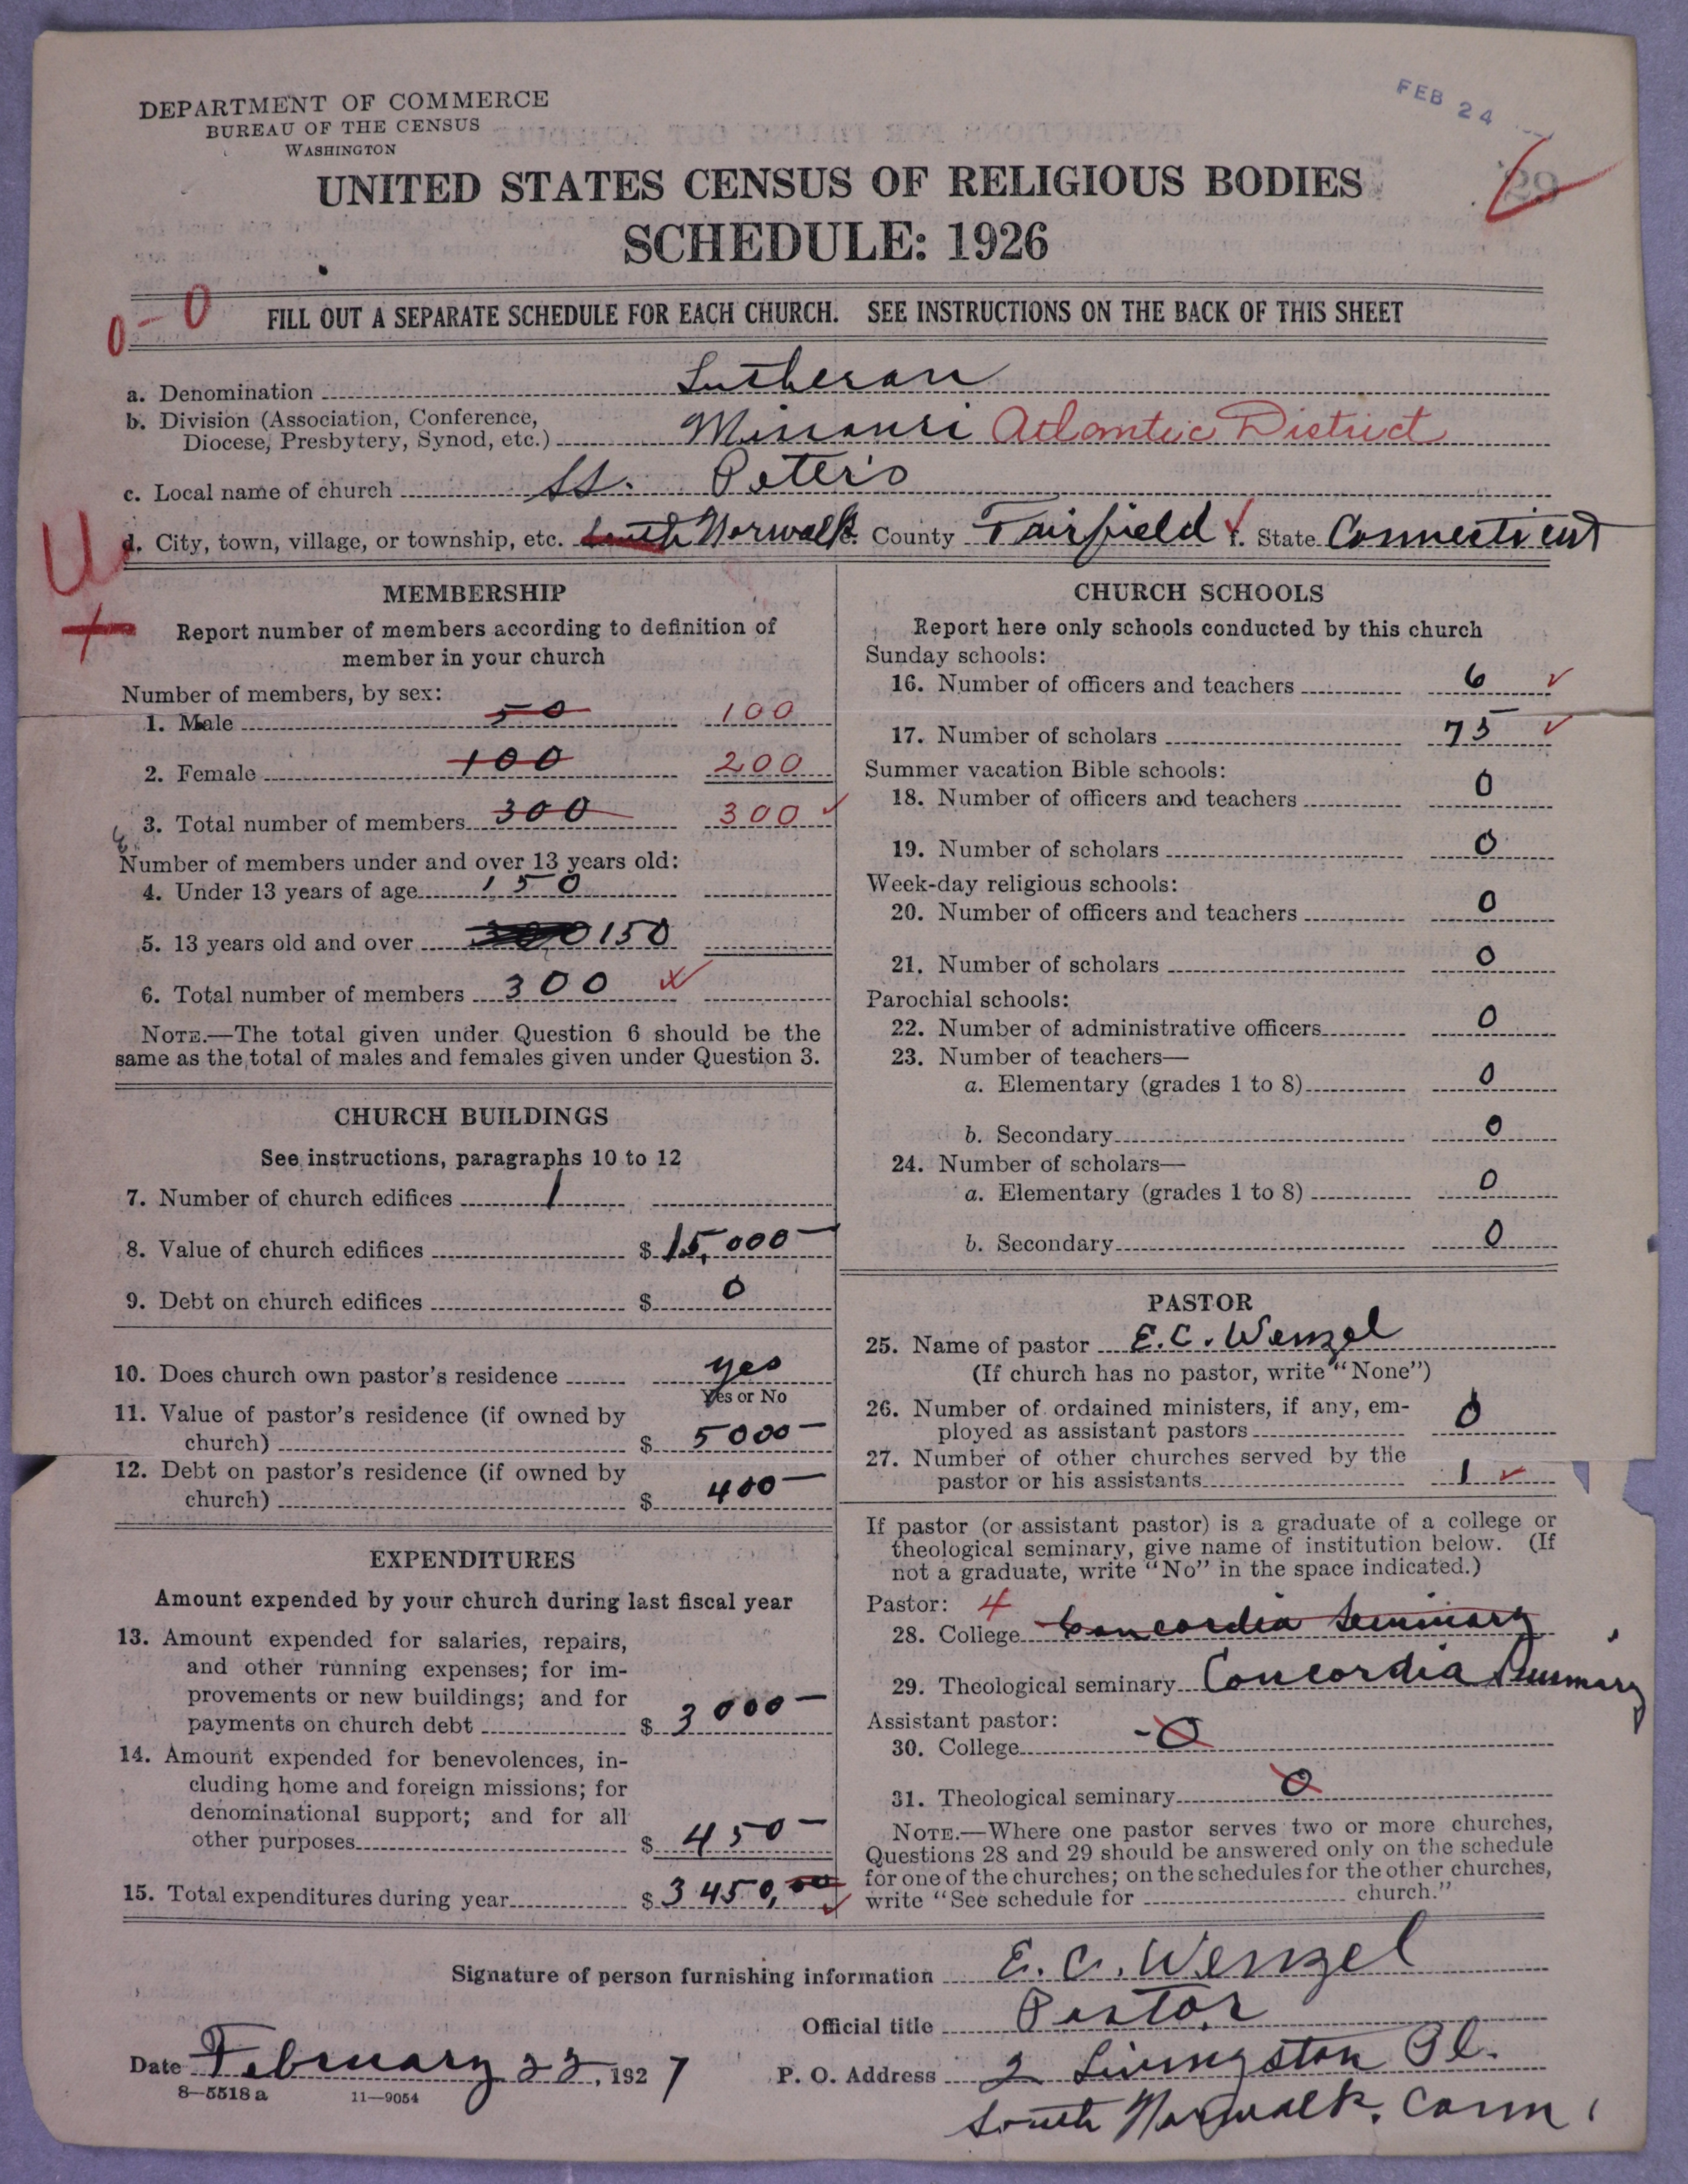 FEB 24
DEPARTMENT OF COMMERCE
BUREAU OF THE CENSUS
WASHINGTON
UNITED STATES CENSUS OF RELIGIOUS BODIES
SCHEDULE: 1926
0-0
FILL OUT A SEPARATE SCHEDULE FOR EACH CHURCH. SEE INSTRUCTIONS ON THE BACK OF THIS SHEET
a. Denomination Lutheran
b. Division (Association, Conference,
Diocese, Presbytery, Synod, etc.) Missouri Atlantic District
c. Local name of church St. Peter's
d. City, town, village, or township, etc. South Norwalk e. County Fairfield f. State Connecticut
U
MEMBERSHIP
Report number of members according to definition of
member in your church
Number of members, by sex:
1. Male 50 100
2. Female 100 200
3. Total number of members 300 300
Number of members under and over 13 years old:
4. Under 13 years of age 150
5. 13 years old and over 300 150
6. Total number of members 300
NOTE.—The total given under Question 6 should be the
same as the total of males and females given under Question 3.
CHURCH BUILDINGS
See instructions, paragraphs 10 to 12
7. Number of church edifices 1
8. Value of church edifices $ 15,000—
9. Debt on church edifices $ 0
10. Does church own pastor's residence yes
Yes or No
11. Value of pastor's residence (if owned by
church) $ 5000—
12. Debt on pastor's residence (if owned by
church) $ 400—
EXPENDITURES
Amount expended by your church during last fiscal year
13. Amount expended for salaries, repairs,
and other running expenses; for im-
provements or new buildings; and for
payments on church debt $ 3000—
14. Amount expended for benevolences, in-
cluding home and foreign missions; for
denominational support; and for all
other purposes $ 450—
15. Total expenditures during year $ 3450,00
CHURCH SCHOOLS
Report here only schools conducted by this church
Sunday schools:
16. Number of officers and teachers 6
17. Number of scholars 75
Summer vacation Bible schools:
18. Number of officers and teachers 0
19. Number of scholars 0
Week-day religious schools:
20. Number of officers and teachers 0
21. Number of scholars 0
Parochial schools:
22. Number of administrative officers 0
23. Number of teachers—
a. Elementary (grades 1 to 8) 0
b. Secondary 0
24. Number of scholars—
a. Elementary (grades 1 to 8) 0
b. Secondary 0
PASTOR
25. Name of pastor E. C. Wenzel
(If church has no pastor, write "None")
26. Number of ordained ministers, if any, em-
ployed as assistant pastors 0
27. Number of other churches served by the
pastor or his assistants 1
If pastor (or assistant pastor) is a graduate of a college or
theological seminary, give name of institution below. (If
not a graduate, write "No" in the space indicated.)
Pastor: 4
28. College Concordia Seminary
29. Theological seminary Concordia Seminary
Assistant pastor:
30. College -0
31. Theological seminary 0
NOTE.—Where one pastor serves two or more churches,
Questions 28 and 29 should be answered only on the schedule
for one of the churches; on the schedules for the other churches,
write "See schedule for church."
Signature of person furnishing information E. C. Wenzel
Official title Pastor
Date February 22, 1927 P. O. Address 2 Livingston Pl.
South Norwalk, Conn.
8—5518 a 11—9054